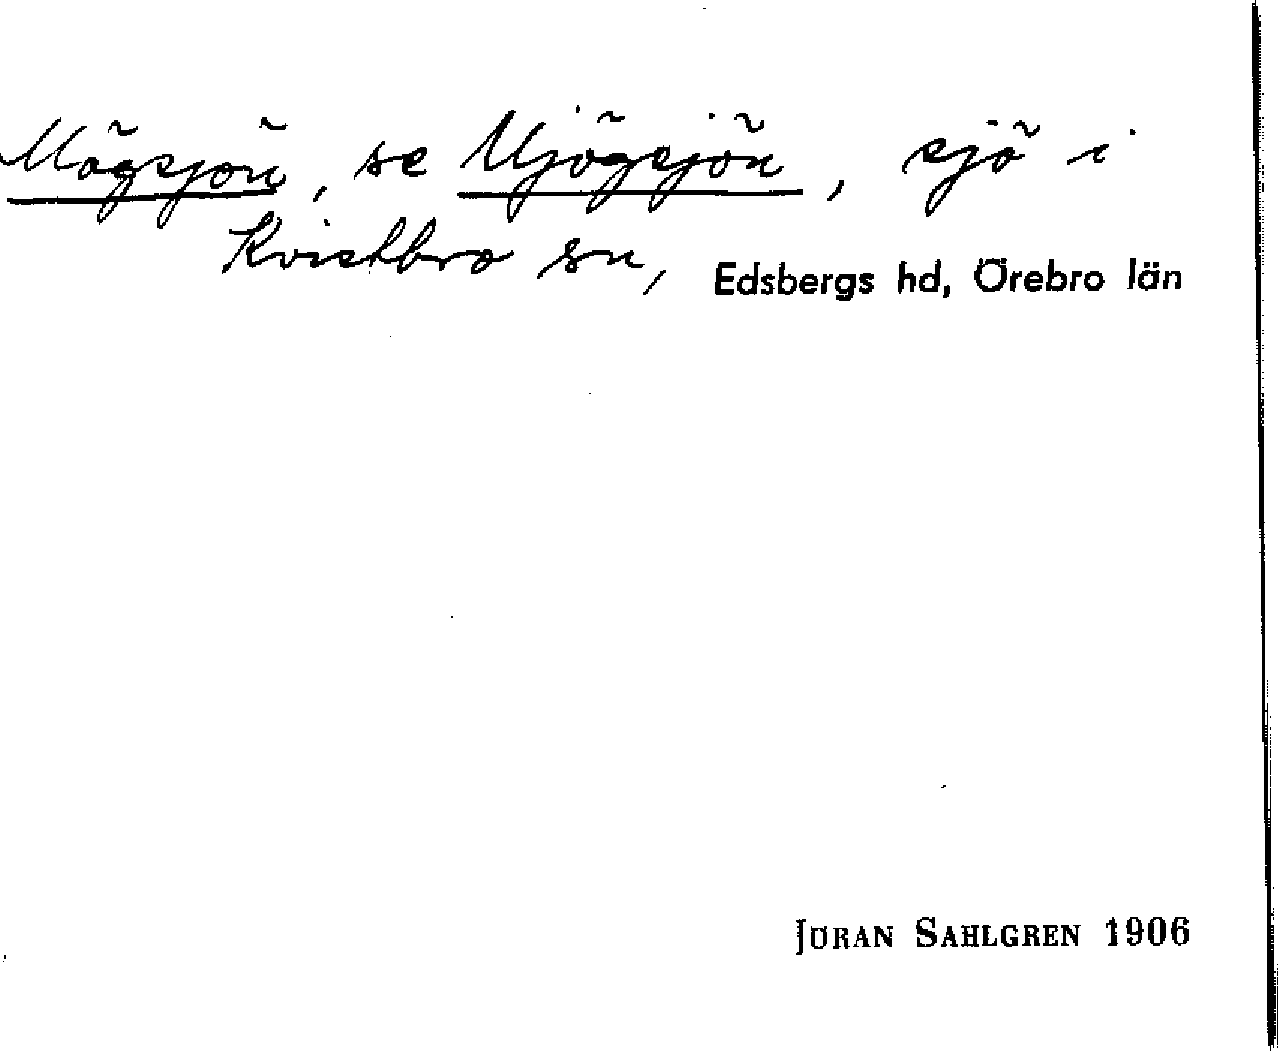 Mögsjön, se Mjögsjön, sjö i
Kvistbro sn, Edsbergs hd, Örebro län
JÖRAN SAHLGREN 1906